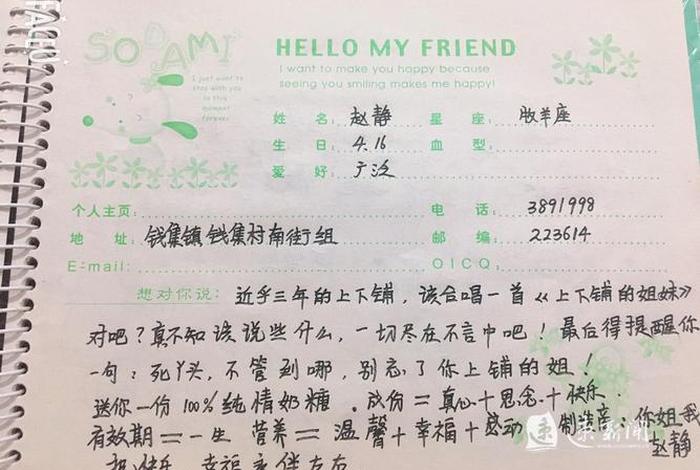 SODAMI
I just want to
stay with you
in this
moment
forever
HELLO MY FRIEND
I want to make you happy because
seeing you smiling makes me happy!
姓名: 赵静 星座: 牧羊座
生日: 4.16 血型:
爱好: 广泛
个人主页: 电话: 3891998
地址: 钱集镇钱集村南街组 邮编: 223614
E-mail: OICQ:
想对你说: 近乎三年的上下铺,该合唱一首《上下铺的姐妹》
对吧?真不知该说些什么,一切尽在不言中吧!最后得提醒你
一句:死丫头,不管到哪,别忘了你上铺的姐!
送你一份100%纯情奶糖.成份=真心+思念+快乐
有效期=一生 营养=温馨+幸福+感动 制造商:你姐我
赵静
祝快乐、幸福永伴左右